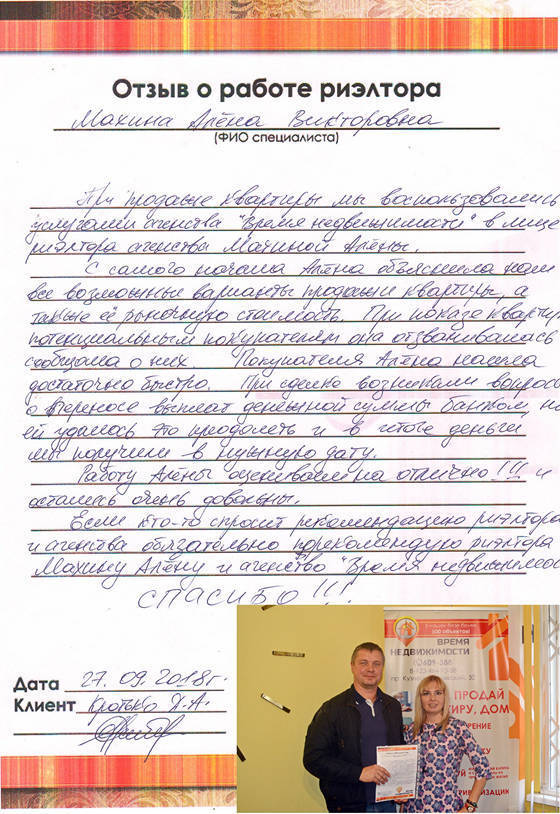 Отзыв о работе риэлтора
Махина Алёна Викторовна
(ФИО специалиста)
При продаже квартиры мы воспользовались
услугами агенства "Время недвижимости" в лице
риэлтора агенства Махиной Алёны.
С самого начала Алёна объяснила нам
все возможные варианты продажи квартиры, а
также её рыночную стоимость. При показе кварти
потенциальным покупателям она отзванивалась
сообщала о них. Покупателя Алёна нашла
достаточно быстро. При сделке возникали вопрос
о переносе выплат денежной суммы банком, но
ей удалось это преодолеть и в итоге деньги
мы получили в нужную дату.
Работу Алёны оцениваем на отлично!!! и
остались очень довольны.
Если кто-то спросит рекомендацию риэлтора
и агенства обязательно порекомендую риэлтора
Махину Алёну и агенство "Время недвижимос
СПАСИБО!!!
Дата 27.09.2018г.
Клиент
100 объектов!
ВРЕМЯ
НЕДВИЖИМОСТИ
609-388
ПРОДАЙ
ТИРУ, ДОМ
РЕНИЕ